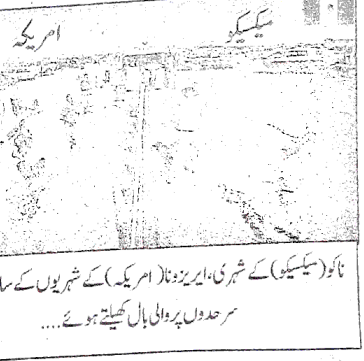 میکسیکو
امریکہ
ناکو (میکسیکو) کے شہری، ایریزونا (امریکہ) کے شہریوں کے سا
سرحدوں پر والی بال کھیلتے ہوئے....